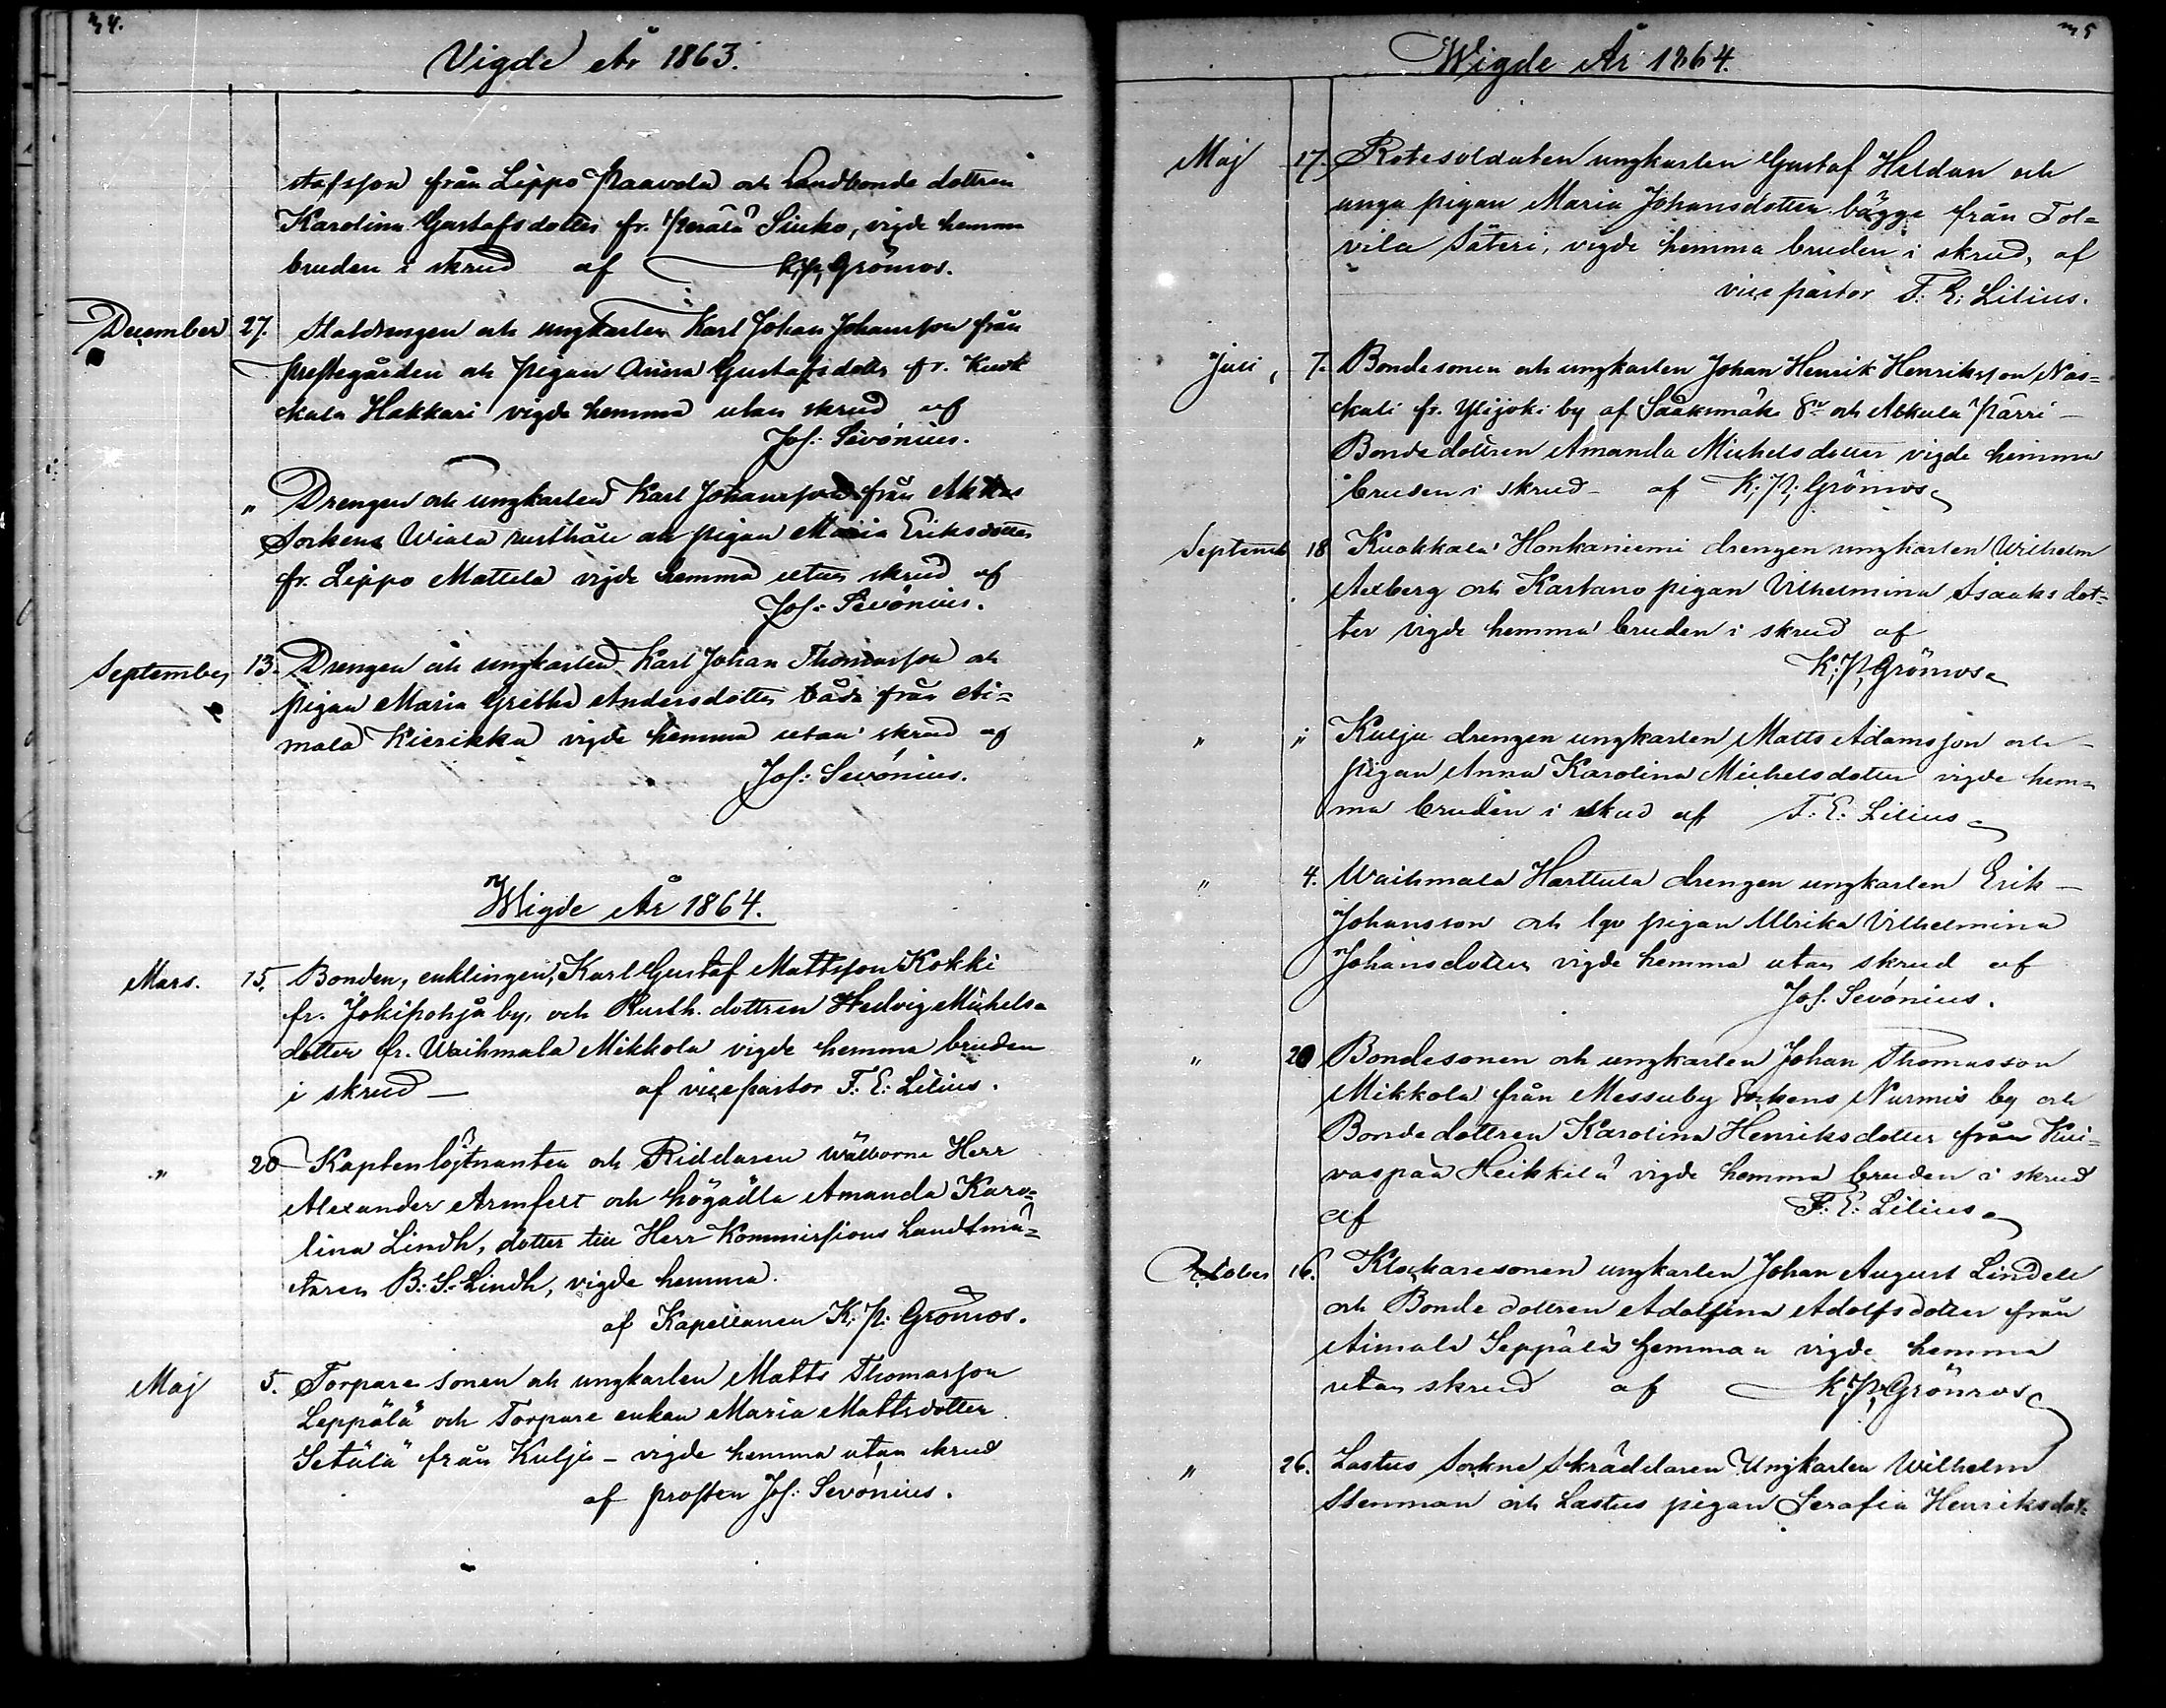 34.
Vigde År 1863.
stafsson från Lippo Paavola och Landbonde dottren
Karolina Gustafsdotter fr. Perälä Siuko, vigde hemma
bruden i skrud af K. P. Grönros.
December 27. Staldrengen och ungkarlen Karl Johan Johansson från
prestegården och pigan Anna Gustafsdottr fr. Kuok
kala Hakkari vigde hemma utan skrud af
Jos: Sevónius.
" Drengen och ungkarlen Karl Johansson från Akkas
Sockens Wiala rusthåll och pigan Maria Eriksdotter
fr. Lippo Mattela vigde hemma utan skrud af
Jos: Sevónius.
September 13. Drengen och ungkarlen Karl Johan Thomasson och
pigan Maria Gretha Andersdotter båda från Ai=
mala Kierikka vigde hemma utan skrud af
Jos: Sevónius.
Wigde År 1864.
Mars. 15. Bonden, enklingen, Karl Gustaf Mattsson Kokki
fr. Jokipohja by, och Rusth. dottren Hedvig Michels=
dotter fr. Waihmala Mikkola vigde hemma bruden
i skrud — af vicepastor F. E. Lilius.
" 20 Kaptenlöjtnanten och Riddaren wälborne Herr
Alexander Armfelt och högädla Amanda Karo=
lina Lindh, dotter till Herr Kommissions Landtmä=
taren B. S. Lindh, vigde hemma.
af Kapellanen K. P. Grönros.
Maj 5. Torpare sonen och ungkarlen Matts Thomasson
Leppälä och Torpare enkan Maria Mattsdotter
Setälä från Kulju — vigde hemma utan skrud
af prosten Jos: Sevónius.
35
Wigde År 1864.
Maj 17. Rotesoldaten ungkarlen Gustaf Heldan och
unga pigan Maria Johansdotter bägge från Tol=
vila Säteri, vigde hemma bruden i skrud, af
vice pastor F. E. Lilius.
Juli, 7. Bondesonen och ungkarlen Johan Henrik Henriksson Nas=
kali fr. Ylijoki by af Sääksmäki Sn och Alkula Pärri —
Bonde dottren Amanda Michelsdotter vigde hemma
bruden i skrud — af K. P. Grönros
Septemb 18 Kuokkala Honkaniemi drengen ungkarlen Wilhelm
Axberg och Kartano pigan Vilhelmina Isaaksdot=
ter vigde hemma bruden i skrud af
K. P. Grönros
" " Kulju drengen ungkarlen Matts Adamsson och —
pigan Anna Karolina Michelsdotter vigde hem=
ma bruden i skrud af F. E. Lilius
" 4. Waihmala Harttula drengen ungkarlen Erik —
Johansson och lgo pigan Ulrika Vilhelmina
Johansdotter vigde hemma utan skrud af
Jos. Sevónius.
" 20 Bondesonen och ungkarlen Johan Thomasson
Mikkola från Messuby Sockens Nurmis by och
Bonde dottren Karolina Henriksdotter från Kui=
vaspää Heikkilä vigde hemma bruden i skrud
af F. E. Lilius
October 16. Klockaresonen ungkarlen Johan August Lindell
och Bonde dottren Adolfina Adolfsdotter från
Aimala Seppälä hemman vigde hemma
utan skrud af K. P. Grönros
" 26. Lastus Sockne skräddaren Ungkarlen Wilhelm
Stenman och Lastus pigan Serafia Henriksdot=